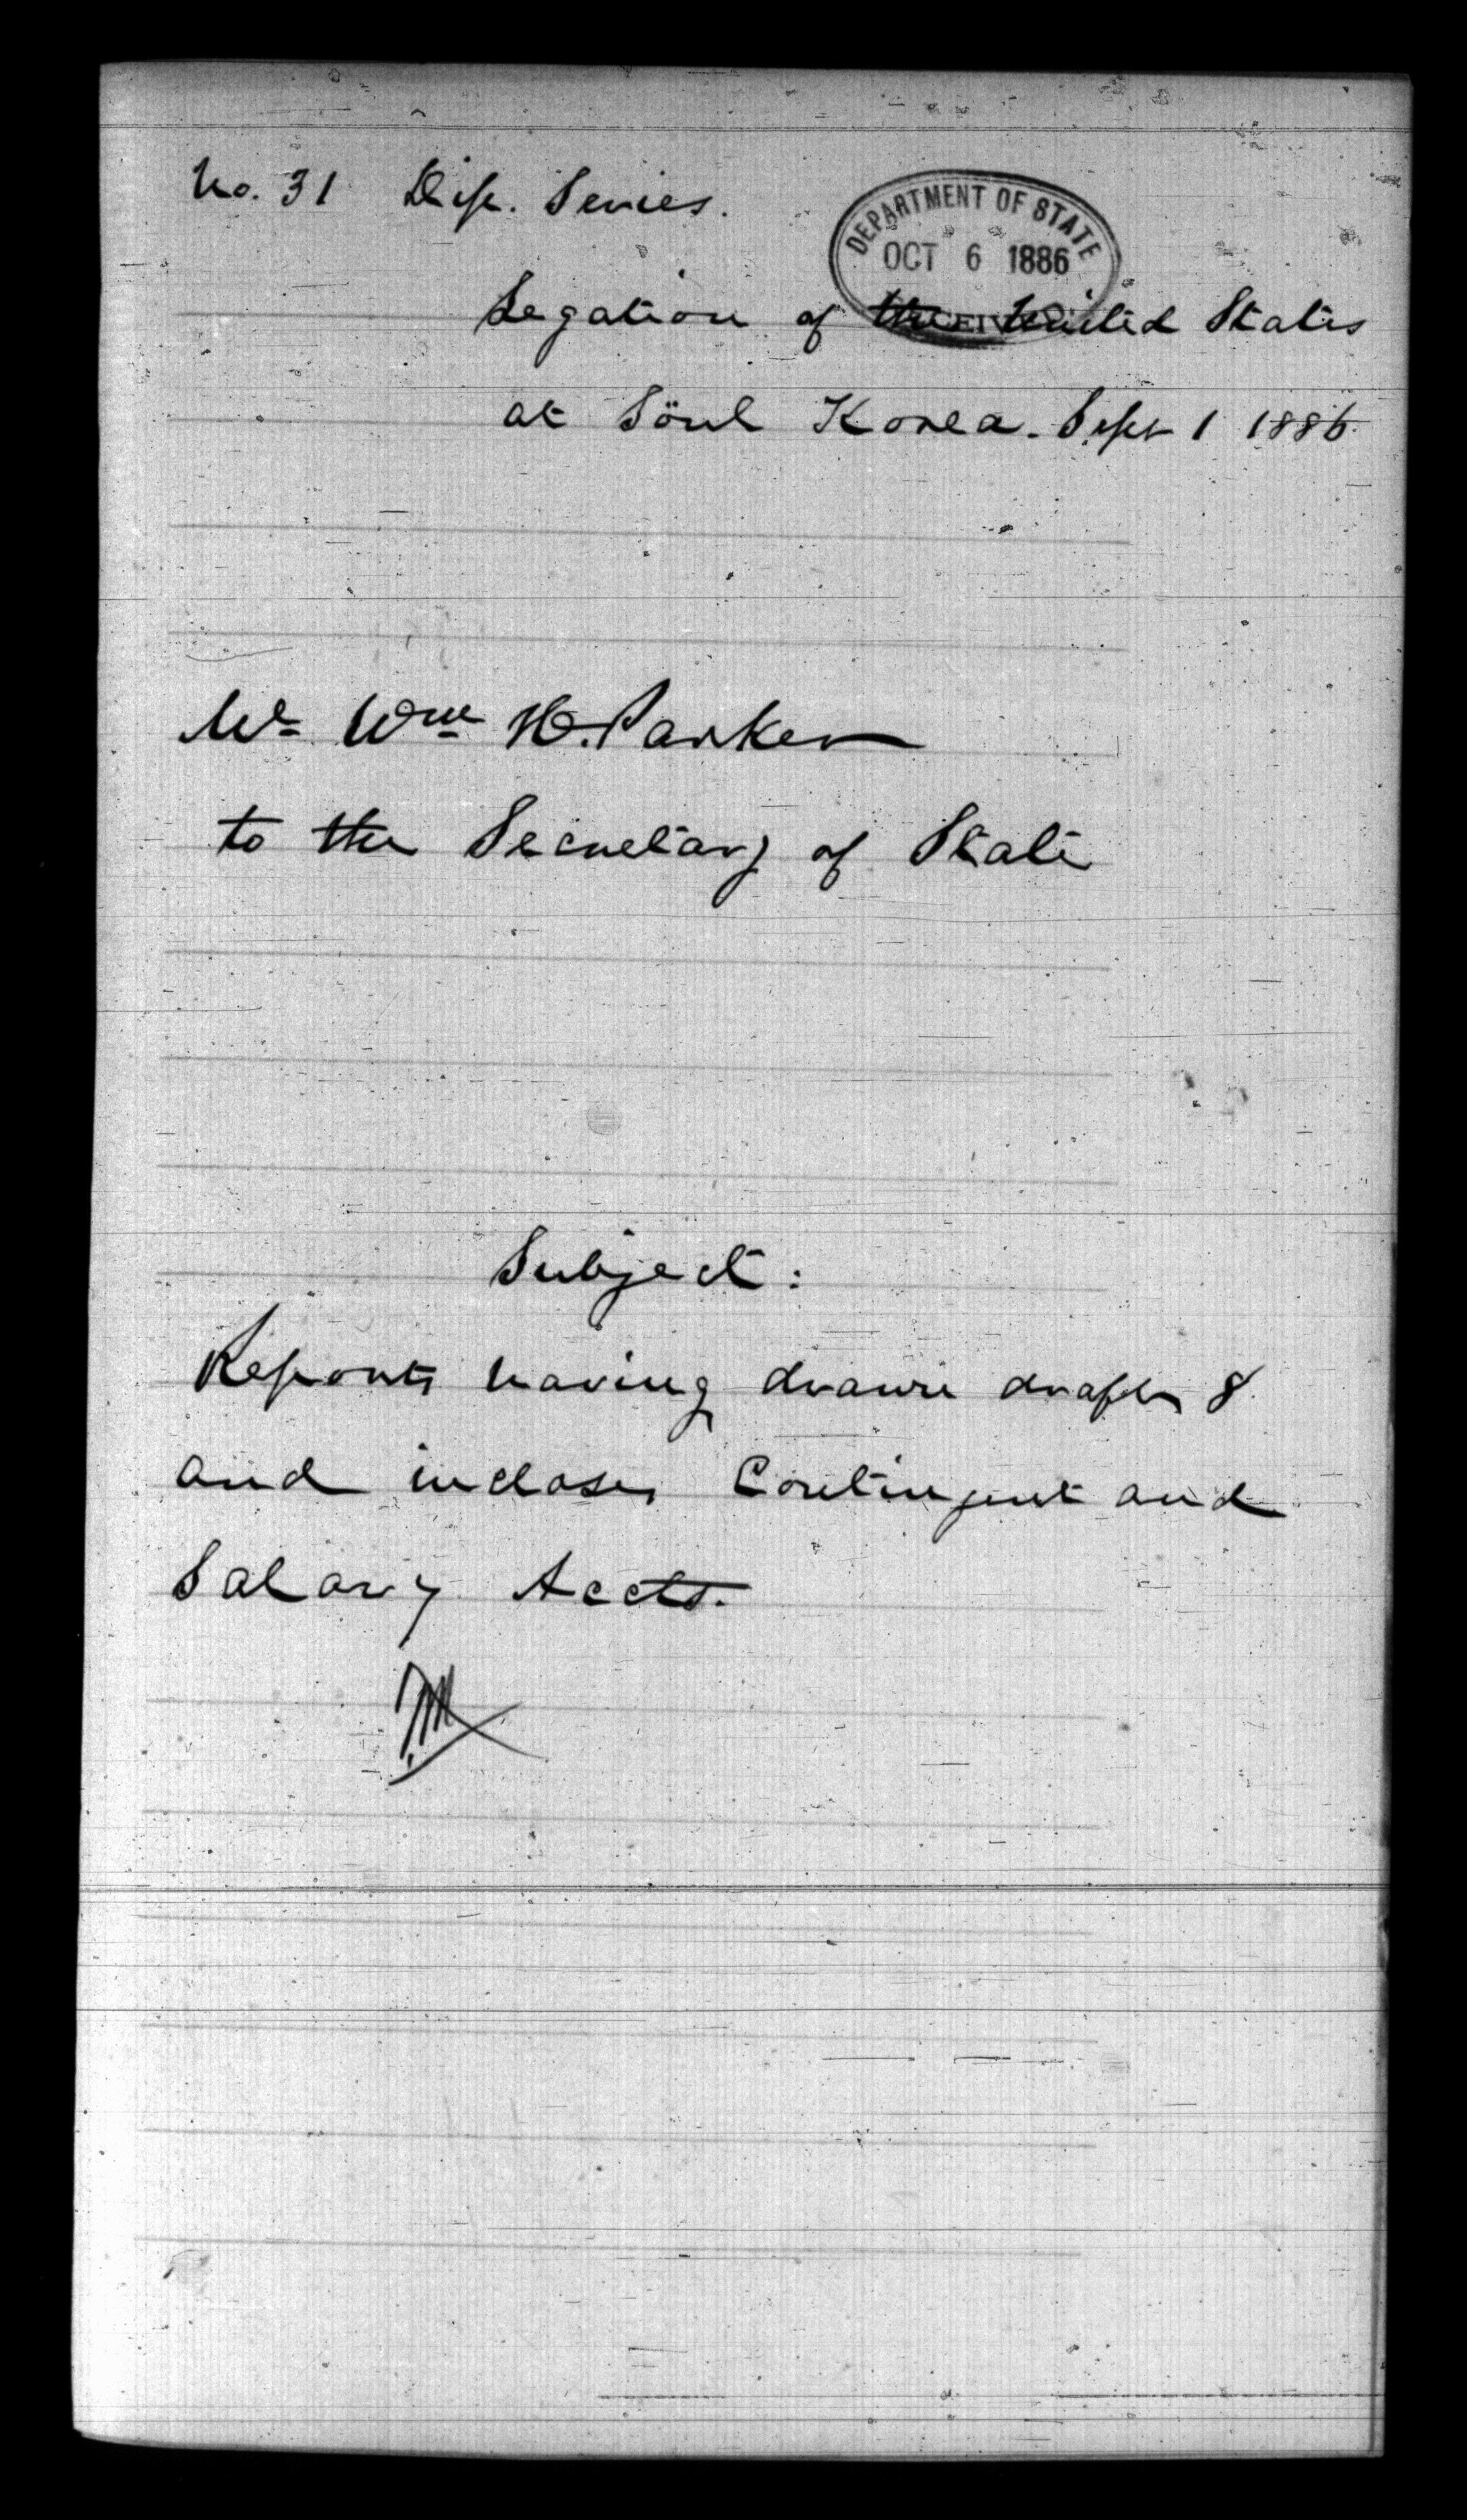 No. 31 Dip. Series.
DEPARTMENT OF STATE
OCT 6 1886
Legation of the United States
at Söul Korea. Sept 1 1886.
Mr Wm H. Parker
to the Secretary of State
Subject:
Reports having drawn drafts 8
and incloses Contingent and
Salary Accts.